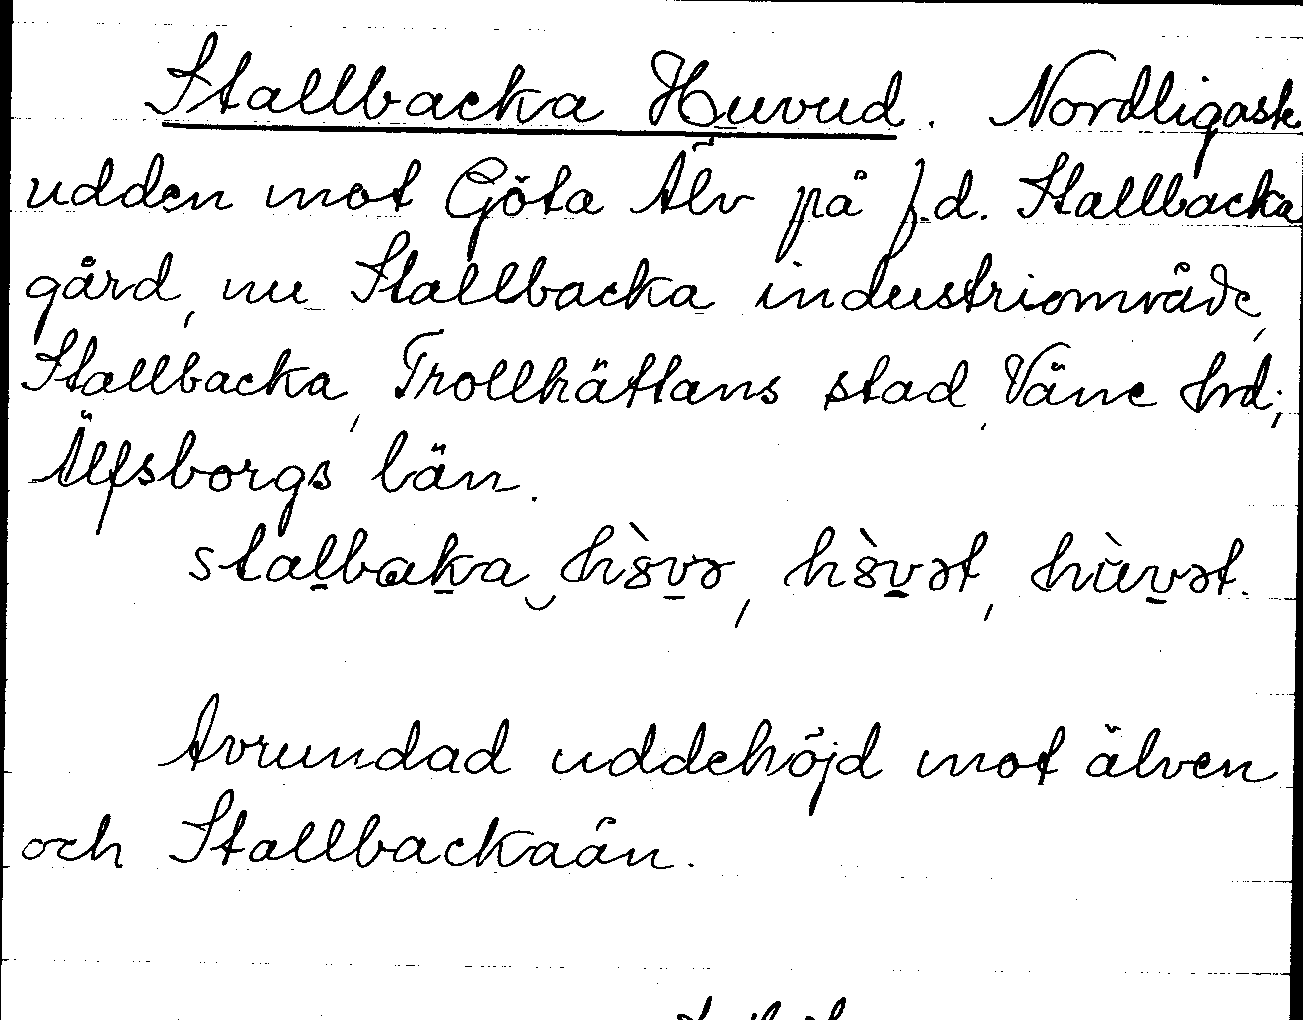 Stallbacka Huvud. Nordligast
udden mot Göta Älv på f.d. Stallbacka
gård, nu Stallbacka industriområde,
Stallbacka, Trollhättans stad, Väne hrd;
Älfsborgs län.
stal̲bak̲a‿hòv̲ə, hòv̲ət, hùv̲ət.
Avrundad uddehöjd mot älven
och Stallbackaån.